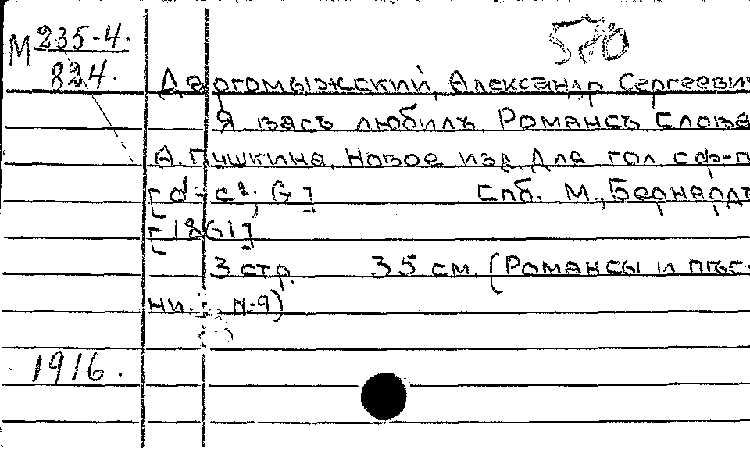 М 235-4.
824.
570
Даргомыжский, Александр Сергеевич
Я васъ любилъ. Романсъ. Слова
А. Пушкина. Новое изд. Для гол. с ф-п
[d-c²; G] Спб. М. Бернардъ
[1861]
3 стр. 35 см. (Романсы и пѣс-
ни. N-9)
1916.